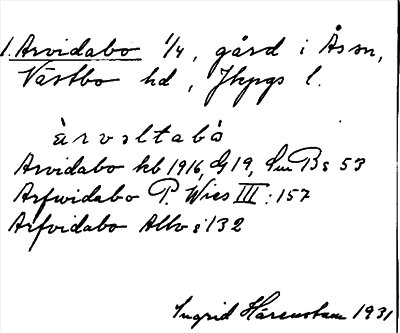 1. Arvidabo 1/4, gård i Ås sn,
Västbo hd, Jkpgs l.
àrvəltabò
Arvidabo kb 1916, G 19, Sm Bs 53
Arfwidabo P. Wies III: 157
Arfvidabo Allv s 132
Ingrid 1931